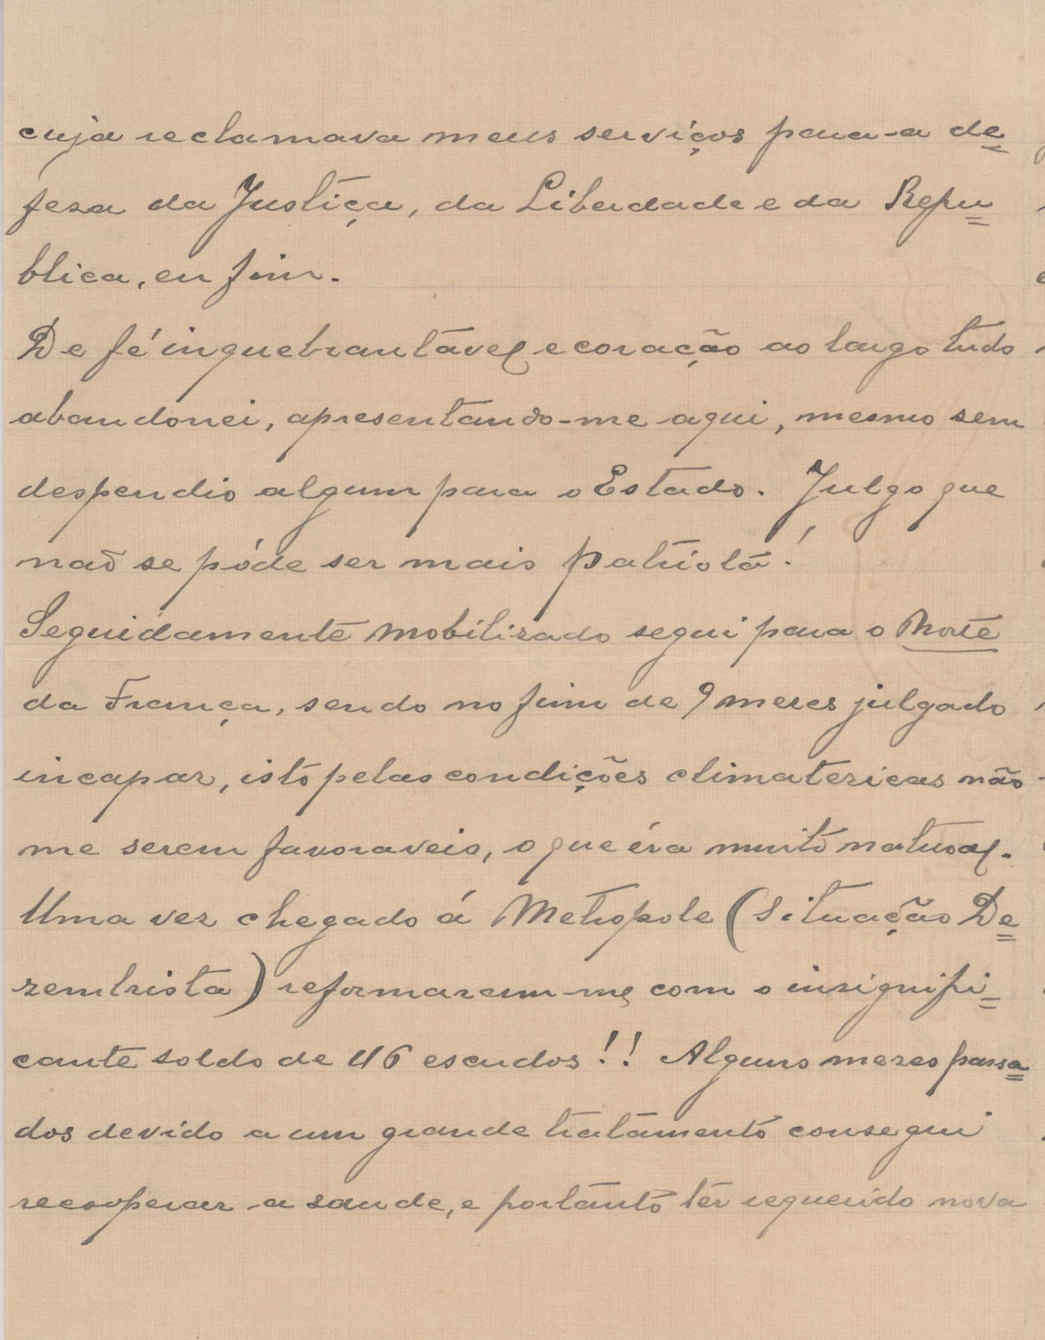 cuja reclamava meus serviços para a de=
feza da Justiça, da Liberdade e da Repu=
blica, en fim.
De fé inquebrantável e coração ao largo tudo
abandonei, apresentando-me aqui, mesmo sem
despendio algum para o Estado. Julgo que
naõ se póde ser mais patriota!
Seguidamente mobilizado segui para o Norte
da França, sendo no fim de 9 mezes julgado
incapaz, isto pelas condições climatericas não
me serem favoraveis, o que éra muito natural.
Uma vez chegado á Metropole (Situação De=
zembrista) reformaram-me com o insignifi=
cante soldo de 46 escudos!! Alguns mezes passa=
dos devido a um grande tratamento consegui
recoperar a saude, e portanto ter requerido nova